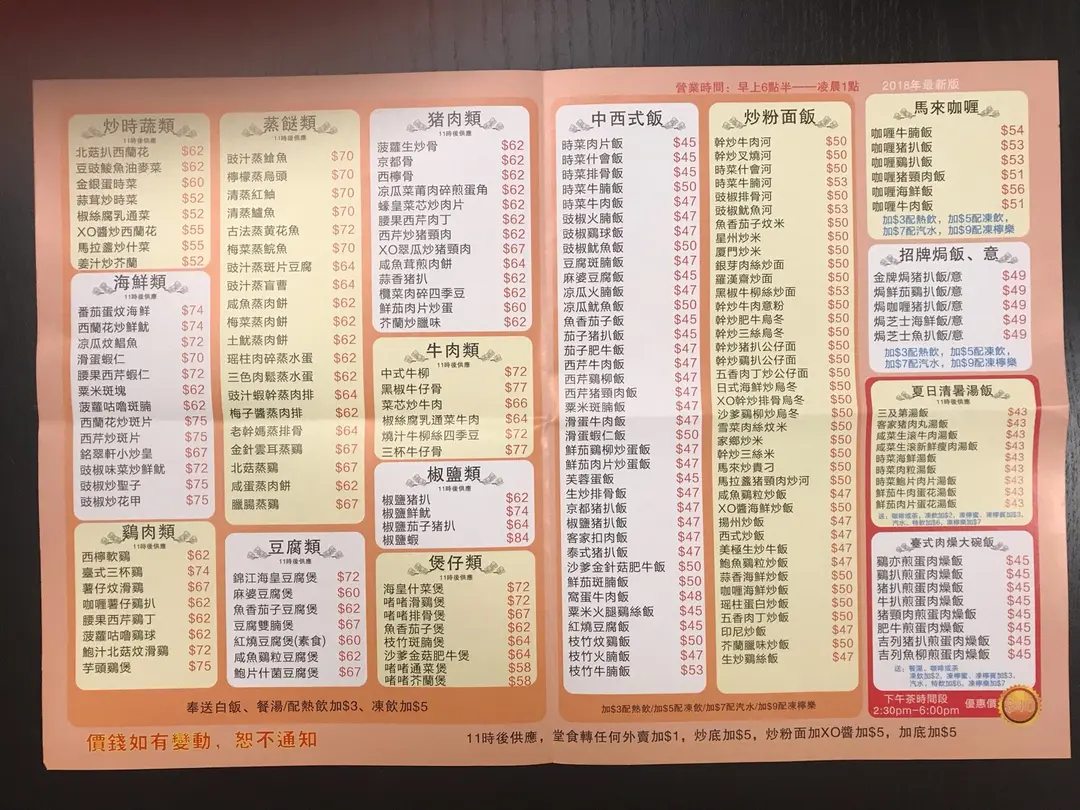 營業時間：早上6點半——凌晨1點
2018年最新版
炒時蔬類
11時後供應
北菇扒西蘭花 $62
豆豉鯪魚油麥菜 $62
金銀蛋時菜 $60
蒜茸炒時菜 $52
椒絲腐乳通菜 $52
XO醬炒西蘭花 $55
馬拉盞炒什菜 $55
姜汁炒芥蘭 $52
海鮮類
11時後供應
番茄蛋炆海鮮 $74
西蘭花炒鮮魷 $74
凉瓜炆鯧魚 $72
滑蛋蝦仁 $70
腰果西芹蝦仁 $72
粟米斑塊 $62
菠蘿咕嚕斑腩 $62
西蘭花炒斑片 $75
西芹炒斑片 $75
銘翠軒小炒皇 $67
豉椒味菜炒鮮魷 $72
豉椒炒聖子 $75
豉椒炒花甲 $75
鷄肉類
11時後供應
西檸軟鷄 $62
臺式三杯鷄 $74
薯仔炆滑鷄 $67
咖喱薯仔鷄扒 $62
腰果西芹鷄丁 $62
菠蘿咕嚕鷄球 $62
鮑汁北菇炆滑鷄 $72
芋頭鷄煲 $75
蒸餸類
11時後供應
豉汁蒸鯧魚 $70
檸檬蒸烏頭 $70
清蒸紅鮋 $70
清蒸鱸魚 $70
古法蒸黄花魚 $72
梅菜蒸鯇魚 $70
豉汁蒸斑片豆腐 $64
豉汁蒸盲曹 $64
咸魚蒸肉餅 $62
梅菜蒸肉餅 $62
土魷蒸肉餅 $62
瑶柱肉碎蒸水蛋 $62
三色肉鬆蒸水蛋 $62
豉汁蝦幹蒸肉排 $64
梅子醬蒸肉排 $62
老幹媽蒸排骨 $64
金針雲耳蒸鷄 $67
北菇蒸鷄 $67
咸蛋蒸肉餅 $62
臘腸蒸鷄 $67
豆腐類
11時後供應
錦江海皇豆腐煲 $72
麻婆豆腐煲 $60
魚香茄子豆腐煲 $62
豆腐雙腩煲 $67
紅燒豆腐煲(素食) $60
咸魚鷄粒豆腐煲 $62
鮑片什菌豆腐煲 $67
猪肉類
11時後供應
菠蘿生炒骨 $62
京都骨 $62
西檸骨 $62
凉瓜菜莆肉碎煎蛋角 $62
蠔皇菜芯炒肉片 $62
腰果西芹肉丁 $62
西芹炒猪頸肉 $62
XO翠瓜炒猪頸肉 $67
咸魚茸煎肉餅 $64
蒜香猪扒 $62
欖菜肉碎四季豆 $62
鮮茄肉片炒蛋 $60
芥蘭炒臘味 $62
牛肉類
11時後供應
中式牛柳 $72
黑椒牛仔骨 $77
菜芯炒牛肉 $66
椒絲腐乳通菜牛肉 $64
燒汁牛柳絲四季豆 $72
三杯牛仔骨 $77
椒鹽類
11時後供應
椒鹽猪扒 $62
椒鹽鮮魷 $74
椒鹽茄子猪扒 $64
椒鹽蝦 $84
煲仔類
11時後供應
海皇什菜煲 $72
啫啫滑鷄煲 $72
啫啫排骨煲 $67
魚香茄子煲 $62
枝竹斑腩煲 $64
沙爹金菇肥牛煲 $64
啫啫通菜煲 $58
啫啫芥蘭煲 $58
奉送白飯、餐湯/配熱飲加$3、凍飲加$5
價錢如有變動，恕不通知
中西式飯
時菜肉片飯 $45
時菜什會飯 $45
時菜排骨飯 $45
時菜牛腩飯 $50
時菜牛肉飯 $47
豉椒火腩飯 $47
豉椒鷄球飯 $47
豉椒魷魚飯 $50
豆腐斑腩飯 $47
麻婆豆腐飯 $45
凉瓜火腩飯 $47
凉瓜魷魚飯 $50
魚香茄子飯 $45
茄子猪扒飯 $45
茄子肥牛飯 $47
西芹牛肉飯 $47
西芹鷄柳飯 $47
西芹猪頸肉飯 $47
粟米斑腩飯 $47
滑蛋牛肉飯 $47
滑蛋蝦仁飯 $50
鮮茄鷄柳炒蛋飯 $47
鮮茄肉片炒蛋飯 $47
芙蓉蛋飯 $45
生炒排骨飯 $47
京都猪扒飯 $47
椒鹽猪扒飯 $47
客家扣肉飯 $47
泰式猪扒飯 $47
沙爹金針菇肥牛飯 $50
鮮茄斑腩飯 $50
窩蛋牛肉飯 $48
粟米火腿鷄絲飯 $45
紅燒豆腐飯 $45
枝竹炆鷄飯 $50
枝竹火腩飯 $47
枝竹牛腩飯 $53
炒粉面飯
幹炒牛肉河 $50
幹炒叉燒河 $50
時菜什會河 $50
時菜牛腩河 $53
豉椒排骨河 $50
豉椒魷魚河 $53
魚香茄子炆米 $50
星州炒米 $50
厦門炒米 $50
銀芽肉絲炒面 $50
羅漢齋炒面 $50
黑椒牛柳絲炒面 $53
幹炒牛肉意粉 $50
幹炒肥牛烏冬 $50
幹炒三絲烏冬 $50
幹炒猪扒公仔面 $50
幹炒鷄扒公仔面 $50
五香肉丁炒公仔面 $50
日式海鮮炒烏冬 $50
XO幹炒排骨烏冬 $50
沙爹鷄柳炒烏冬 $50
雪菜肉絲炆米 $50
家鄉炒米 $50
幹炒三絲米 $50
馬來炒貴刁 $50
馬拉盞猪頸肉炒河 $50
咸魚鷄粒炒飯 $47
XO醬海鮮炒飯 $50
揚州炒飯 $47
西式炒飯 $47
美極生炒牛飯 $47
鮑魚鷄粒炒飯 $47
蒜香海鮮炒飯 $50
咖喱海鮮炒飯 $50
瑶柱蛋白炒飯 $50
五香肉丁炒飯 $50
印尼炒飯 $47
芥蘭臘味炒飯 $50
生炒鷄絲飯 $47
加$3配熱飲/加$5配凍飲/加$7配汽水/加$9配凍檸樂
馬來咖喱
咖喱牛腩飯 $54
咖喱猪扒飯 $53
咖喱鷄扒飯 $53
咖喱猪頸肉飯 $51
咖喱海鮮飯 $56
咖喱牛肉飯 $51
加$3配熱飲，加$5配凍飲，
加$7配汽水，加$9配凍檸樂
招牌焗飯、意
金牌焗猪扒飯/意 $49
焗鮮茄鷄扒飯/意 $49
焗咖喱猪扒飯/意 $49
焗芝士海鮮飯/意 $49
焗芝士魚扒飯/意 $49
加$3配熱飲，加$5配凍飲，
加$7配汽水，加$9配凍檸樂
夏日清暑湯飯
11時後供應
三及第湯飯 $43
客家猪肉丸湯飯 $43
咸菜生滚牛肉湯飯 $43
咸菜生滚新鮮瘦肉湯飯 $43
時菜海鮮湯飯 $43
時菜肉粒湯飯 $43
時菜鮑片肉片湯飯 $43
鮮茄牛肉蛋花湯飯 $43
鮮茄肉片蛋花湯飯 $43
送：咖啡或茶，凍飲加$2，凍檸蜜、凍檸賓加$3，
汽水、特飲加$6，凍檸樂加$7
臺式肉燥大碗飯
11時後供應
鷄亦煎蛋肉燥飯 $45
鷄扒煎蛋肉燥飯 $45
猪扒煎蛋肉燥飯 $45
牛扒煎蛋肉燥飯 $45
猪頸肉煎蛋肉燥飯 $45
肥牛煎蛋肉燥飯 $45
吉列猪扒煎蛋肉燥飯 $45
吉列魚柳煎蛋肉燥飯 $45
送：餐湯、咖啡或茶
凍飲加$2，凍檸蜜、凍檸賓加$3，
汽水、特飲加$6，凍檸樂加$7
下午茶時間段
2:30pm-6:00pm 優惠價
11時後供應，堂食轉任何外賣加$1，炒底加$5，炒粉面加XO醬加$5，加底加$5